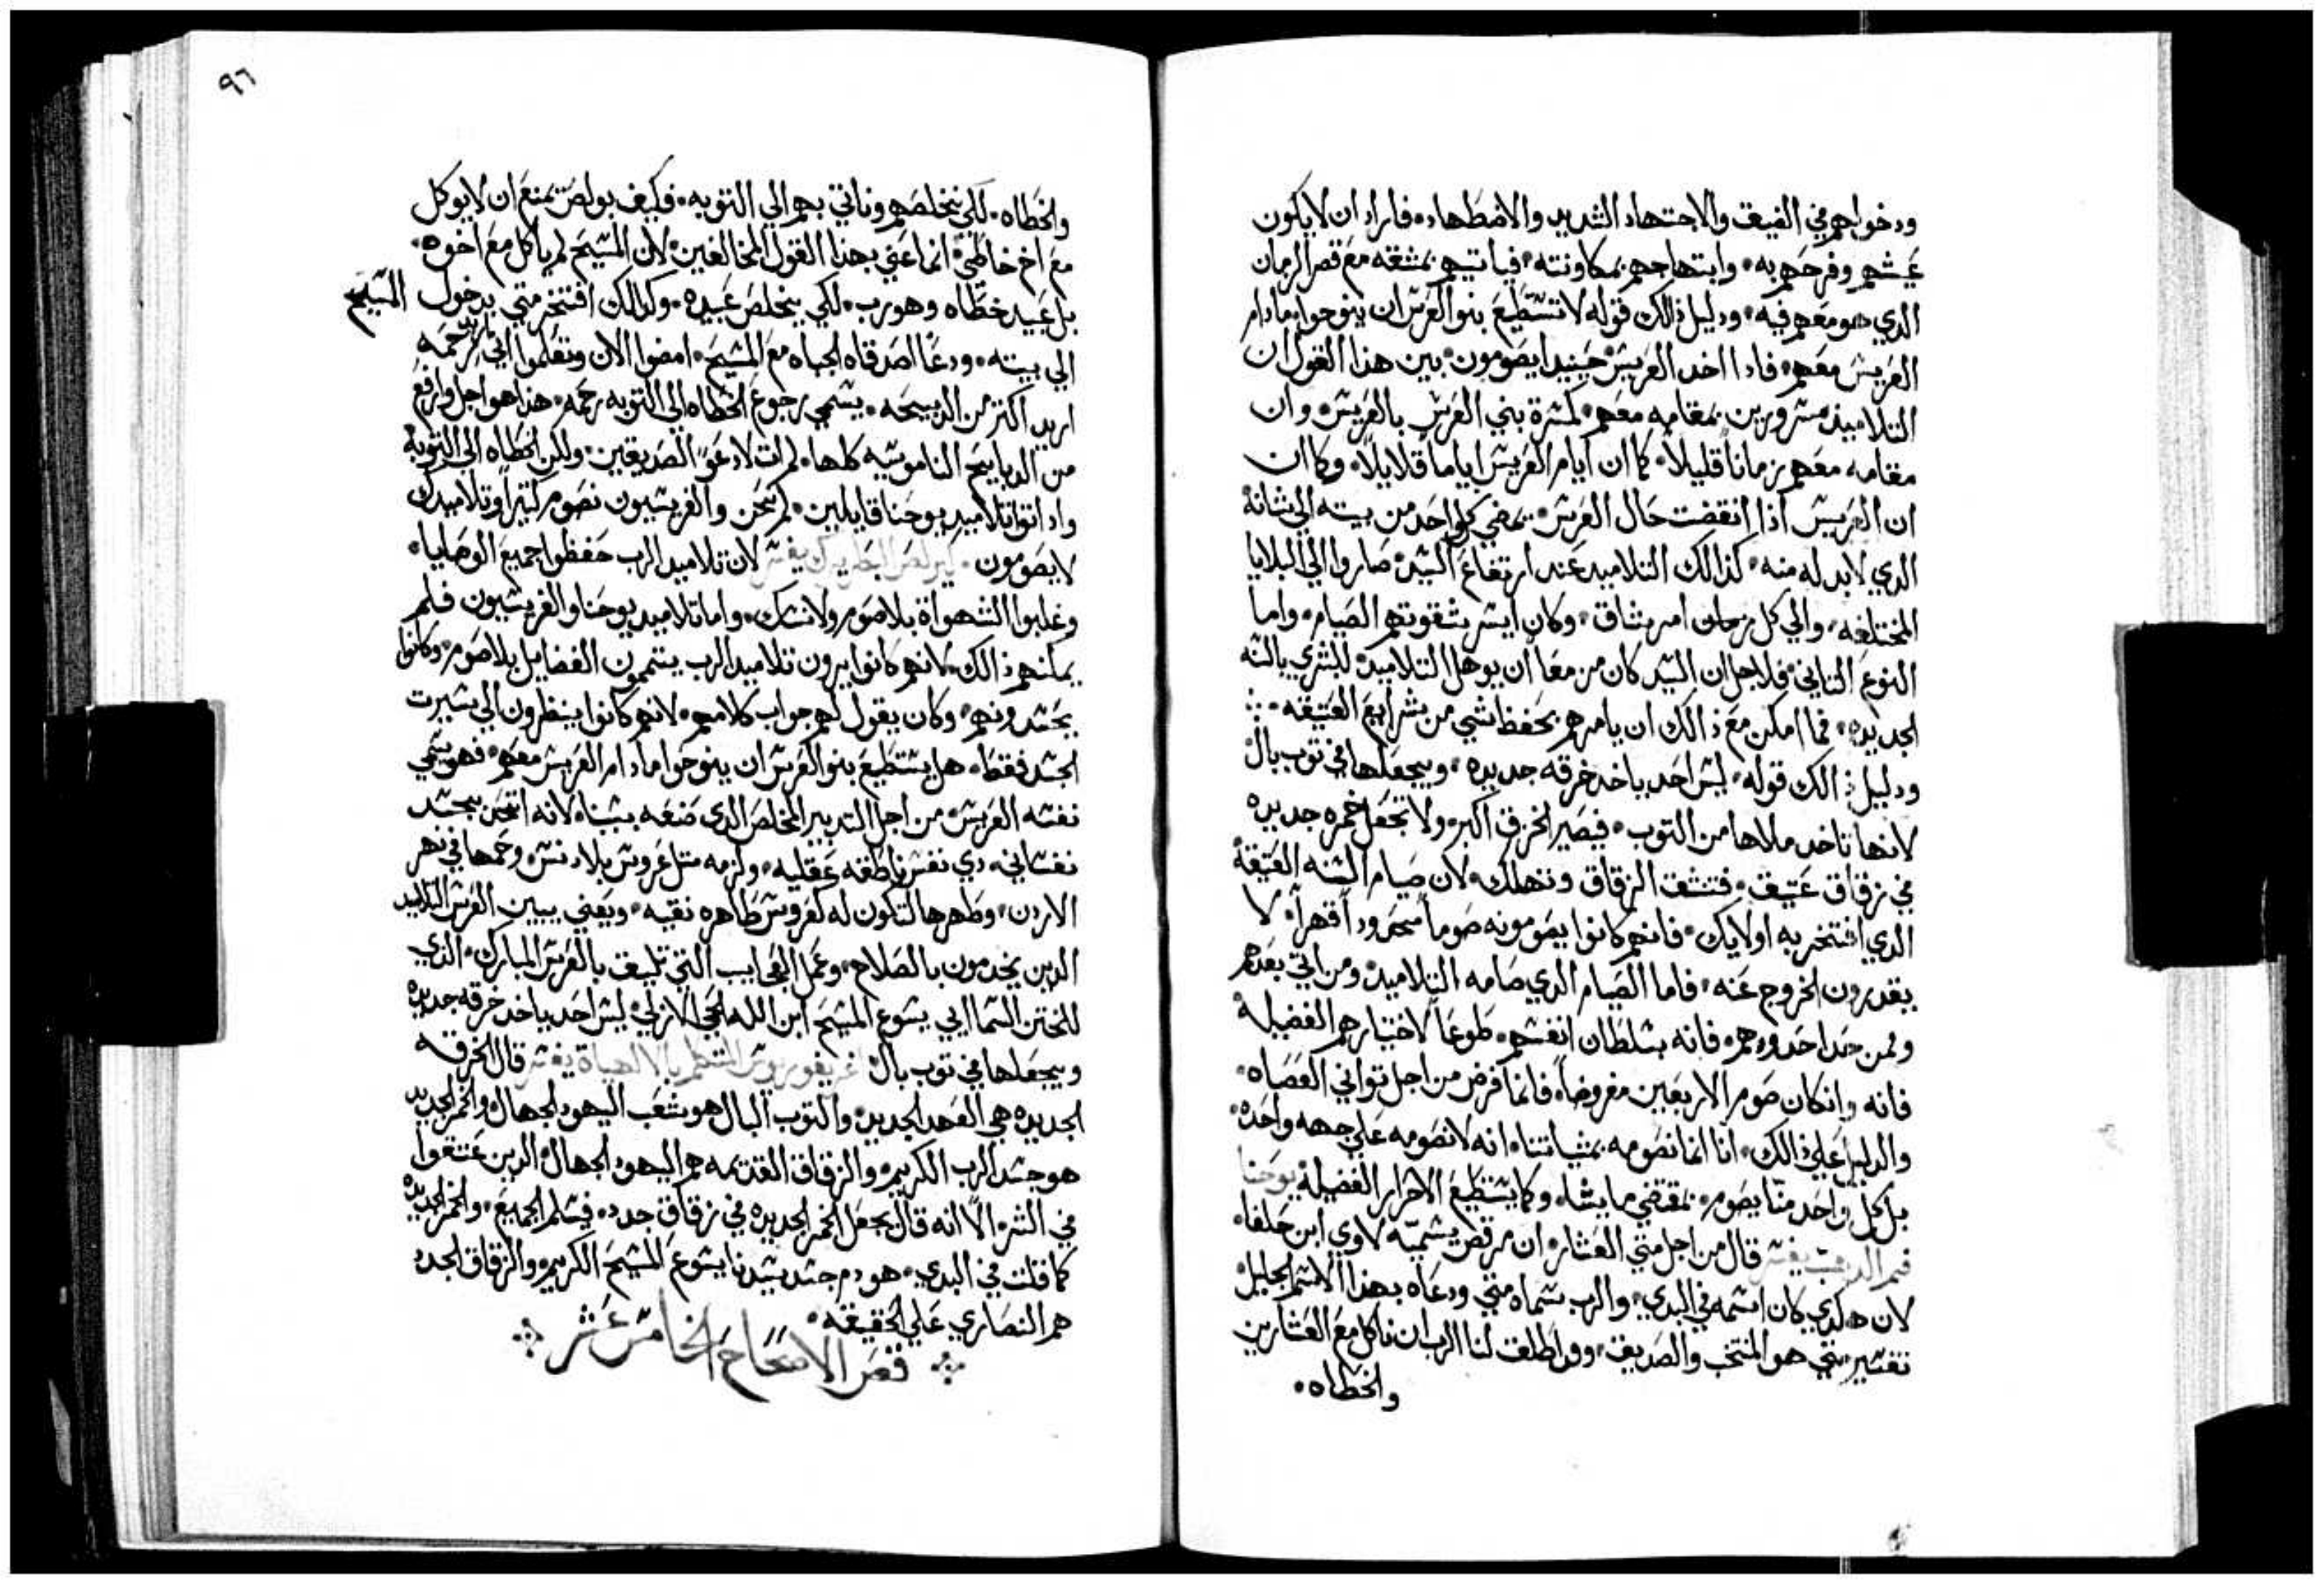 ودخولهم في الضيق والاجتهاد الشديد والاضطهاد، فاراد ان لا يكون
عيشهم وفرحهم به، وابتهاجهم بمكاونته، فياتيهم بمشقه مع قصر الزمان
الدي هو معهم فيه، ودليل ذالك قوله لا تستطيع بنوا العرس ان ينوحوا، مادام
العريس معهم، فادا اخد العريس حينيدا يصومون، بين هذا القول ان
التلاميذ مسرورين بمقامه معهم، كمسرة بني العرس بالعريس، وان
مقامه معهم زماناً قليلاً، كما ان ايام العريس اياما قلايلاً، وكما ان
ان العريس اذا انقضت حال العرس، يمضي كل واحد من بيته الي شانه
الدي لابد له منه، كذالك التلاميد عند ارتفاع السيد، صاروا الي البلايا
المختلفه، والي كل زمان امر شاق، وكان ايسر شقوتهم الصيام، واما
النوع التاني، فلاجل ان السيد كان مزمعا ان يوهل التلاميد، للبشري بالسنه
الجديده، فما امكن مع ذالك ان يامرهم بحفظ شي من شرايع العتيقه،
ودليل ذالك قوله، ليس احد ياخد خرقه جديده، ويجعلها في توب بال،
لانها تاخد ملاها من التوب، فيصير الخرق اكبر، ولا تجعل خمره جديده
في زقاق عتيق، فتنشق الزقاق وتهلك، لان صيام السنه العتيقة
الدي افتخر به اولايك، فانهم كانوا يصومونه صوماً محدوداً قهراً، لا
يقدرون الخروج عنه، فاما الصيام الدي صامه التلاميد، ومن اتي بعدهم
ولمن حد احدوهم، فانه بسلطان انفسهم، طوعاً لاختيارهم الفضيلة
فانه وانكان صوم الاربعين مفروضاً، فانما فرض من اجل تواني العصاه،
والدليل علي ذالك، انا انما نصومه بمشياتنا، انه لا نصومه علي جهه واحده،
بل كل واحد منا يصوم، بمقتضي ما يشا، وكما يستطيع الاحرار الفضيلة، يوحنا
فم الدهب يفسر قال من اجل متي العشار، ان مرقص يسميه لاوي ابن حلفا،
لان هكدي كان اسمه في البدي، والرب سماه متي، ودعاه بهذا الاسم الجليل،
تفسير متي هو المنتخب والصديق، وقد اطلق لنا الرب ان ناكل مع العشارين
والخطاه،
٩٦
والخطاه، لكي نخلصهم وناتي بهم الي التوبه، فكيف بولص تمنع ان لا يوكل
مع اخ خاطي، انما عني بهذا القول المخالفين، لان المسيح لم ياكل مع اخوه،
بل عبيد خطاه وهو رب، لكي يخلص عبيده، وكدالك افتخر متي بدخول المسيح
الي بيته، ودعا اصدقاه الجباه مع المسيح، امضوا الان وتعلموا اني اريد رحمه
اريد اكتر من الدبيحه، يسمي رجوع الخطاه الي التوبه رحمه، هذا هو اجل وارفع
من الدبايح الناموسيه كلها، لم ات لادعو الصديقين، ولكن الخطاه الي التوبة
واد اتوا تلاميد يوحنا قايلين، لم نحن والفريسيون نصوم كتيرا وتلاميدك
لا يصومون، كيرلص البطريرك يفسر لان تلاميد الرب حفظوا جميع الوصايا،
وغلبوا الشهواة بلا صوم ولا نسك، واما تلاميد يوحنا والفريسيون فلم
يمكنهم ذالك، لانهم كانوا يرون تلاميد الرب يتممون الفضايل بلا صوم، وكانوا
يحسدونهم، وكان يقول لهم جواب كلامهم، لانهم كانوا ينظرون الي سيرت
الجسد فقط، هل يستطيع بنوا العرس ان ينوحوا مادام العريس معهم، فهو يسمي
نفسه العريس، من اجل التدبير المخلص الدي صنعه بسببنا، لانه اتحد بجسد
نفساني، دي نفس ناطقه عقليه، ولزمه متل عروس بلا دنس، وحمها في نهر
الاردن، وطهرها لتكون له كعروس طاهره نقيه، ويعني ببني العرس التلاميد
الدين يخدمون بالصلاح، وعمل العجايب التي تليق بالعرس المبارك، الدي
للختن السماايي يسوع المسيح ابن الله الحي الازلي، ليس احد ياخد خرقه جديده
ويجعلها في توب بال، غريغوريوس المتكلم بالالهياة يفسر قال الخرقه
الجديده هي العهد الجديد، والتوب البال هو شعب اليهود الجهال، والخمر الجديد
هو جسد الرب الكريم، والزقاق القديمه هم اليهود الجهال، الدين عتقوا
في الشر، الا انه قال يجعل الخمر الجديده في زقاق جدد، فيسلم الجميع، والخمر الجديده
كما قلت في البدي، هو دم جسد سيدنا يسوع المسيح الكريم، والزقاق الجدد
هم النصاري علي الحقيقه،
قصر الاصحاح الخامس عشر